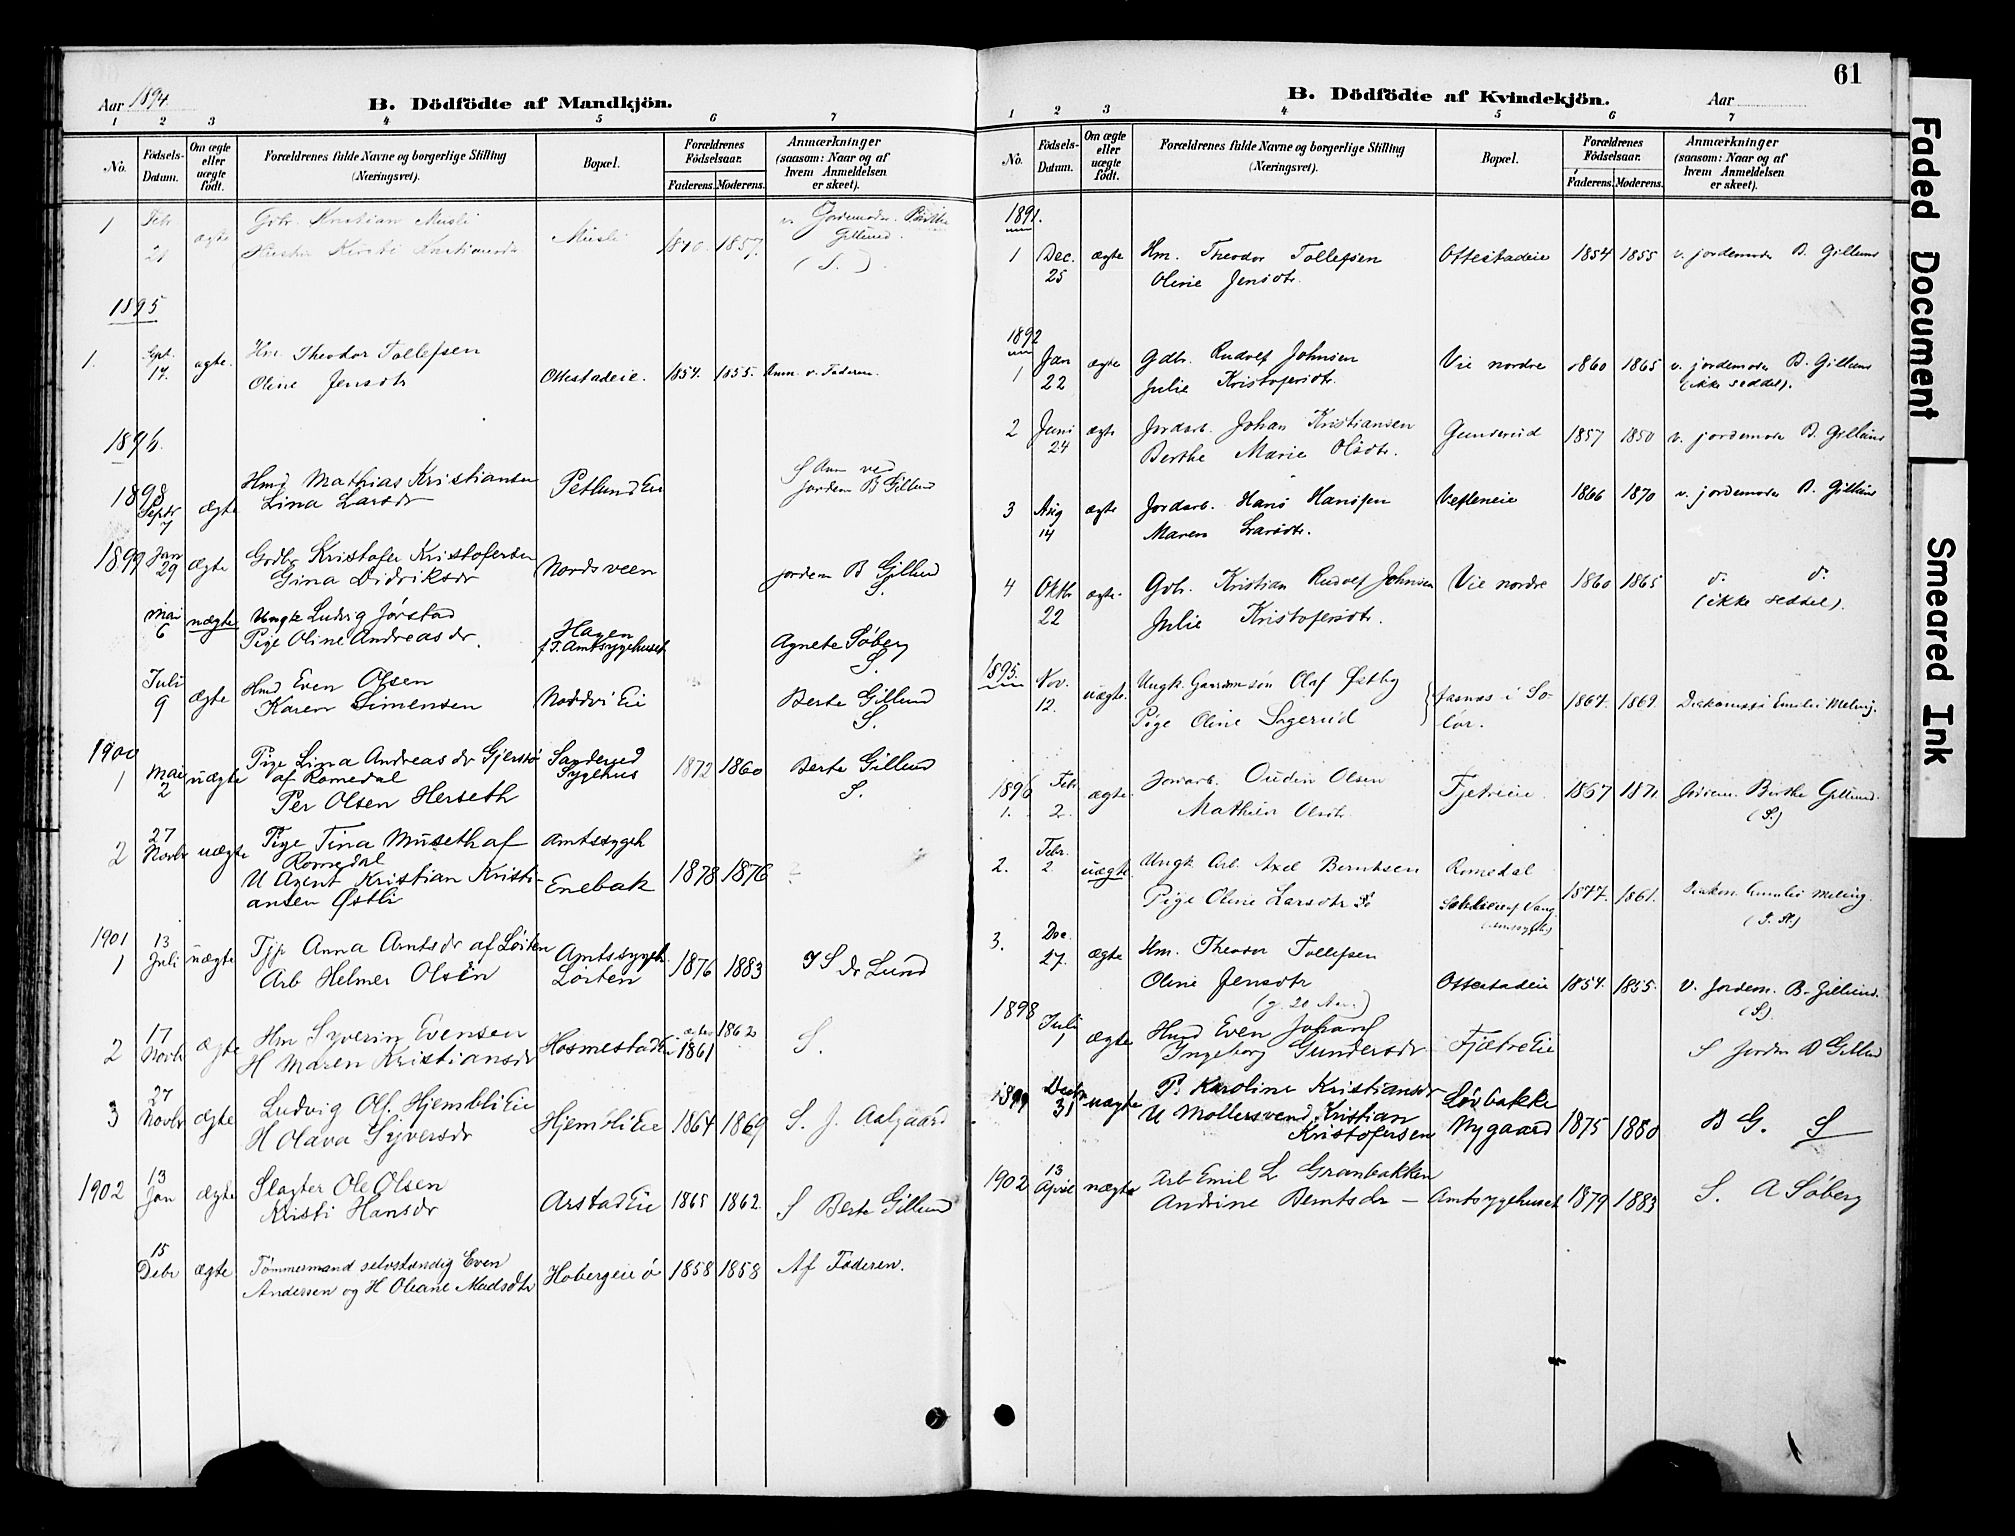 Aar 1894.
B. Dödfödte af Mandkjön.
1 2 3 4 5 6 7
No.
Födsels-Datum.
Om ægte eller uægte födt.
Forældrenes fulde Navne og borgerlige Stilling (Næringsvei).
Bopæl.
Forældrenes Födselsaar.
Faderens. Moderens.
Anmærkninger (saasom: Naar og af hvem Anmeldelsen er skeet).
1 Febr 21 ægte Gdbr. Kristian Musli
Hustru Kirsti Kristiansdr
Musli 1840. 1857. v. Jordemoder Berthe Gillund.
(S.)
1895
1. Sept. 17. ægte. Hm. Theodor Tollefsen
Oline Jensdtr
Ottestadeie. 1854. 1855. Anm. v. Faderen.
1896.
1898 Septr 7 ægte Hmd Mathias Kristiansen
Lina Larsdr
Petlund Eie
S Anm ved
jordem B Gillund
1899 Jan 29 ægte Grdbr Kristofer Kristofersen
Gina Didriksdr
Nordsveen jordem B Gillund
S.
Mai 6 uægte Ungk Ludvig Jørstad
Pige Oline Andreasdr.
Hagen
f. T. Amtsygehuset
Agnete Søberg
S.
Juli 9 ægte Hmd Even Olsen
Karen Simensen
Noddvi Eie Berte Gillund
S.
1900
1 Mai 2 uægte Pige Lina Andreasdr Gjerstø
af Romedal
Per Olsen Herseth
Sanderud
Sygehus
1872 1860 Berte Gillund
S.
2 27 Novbr uægte Pige Tina Museth af
Romedal
U Agent Kristian Kristi-
ansen Østli
Amtssygeh
Enebak 1878 1876
1901
1 13 Juli uægte Tjp Anna Arntsdr af Løiten
Arb Helmer Olsen
Amtssygeh.
Løiten 1876 1883 S dr Lund
2 17 Novbr ægte Hm Syverin Evensen
H Maren Kristiansdr
Hosmestad 1861 1862 S.
3 27 Novbr ægte Ludvig Ols. Hjembli Eie
H Olava Syversdr
Hjembli Eie 1864 1869 S. J. Aalgaard
1902 13 Jan ægte Slagter Ole Olsen
Kristi Hansdr
Arstad Eie 1865 1862 S Berte Gillund
15 Debr ægte Tømmermand selvstændig Even
Andersen og H Oleane Madsdtr
Hobergeie ö 1858 1858 Af Faderen.
61
B. Dödfödte af Kvindekjön.
Aar
1 2 3 4 5 6 7
No.
Födsels-Datum.
Om ægte eller uægte födt.
Forældrenes fulde Navne og borgerlige Stilling (Næringsvei).
Bopæl.
Forældrenes Födselsaar.
Faderens. Moderens.
Anmærkninger (saasom: Naar og af hvem Anmeldelsen er skeet).
1891.
1 Dec. 25 ægte Hm. Theodor Tollefsen
Oline Jensdtr.
Ottestadeie 1854 1855 v. jordemoder B. Gillund
1892
1 Jan 22 ægte Gdbr. Rudolf Johnsen
Julie Kristofersdtr.
Vie nordre 1860 1865 v. jordemoder B. Gillund
(ikke seddel).
2 Juni 24 ægte Jordarb. Johan Kristiansen
Berthe Marie Olsdtr.
Gunderud 1857 1850 v. jordemoder B. Gillund
3 Aug 14 ægte Jordarb. Hans Hansen
Maren Larsdtr.
Vesleneie 1866 1870 v. jordemoder B. Gillund
4 Oktbr 22 ægte Gdbr. Kristian Rudolf Johnsen
Julie Kristofersdtr.
Vie nordre 1860 1865 d. d.
(ikke seddel).
1895. Nov. 12. uægte. Ungk. Gaardmsøn Olaf Østby
Pige Oline Sagerud
Jasnæs i So-
lør.
1867. 1869. Diakonisse Emilie Meling.
1896
1. Febr 2. ægte. Jordarb. Oudin Olsen
Mathilde Olsdtr.
Fjetreeie 1867 1871 Jordem. Berthe Gillund.
(S.)
2. Febr. 2 uægte Ungk. Arb. Axel Berntsen
Pige Oline Larsdtr
Romedal
1877. 1861. Diakon. Emilie Meling.
3. Dec. 27. ægte Hm. Theodor Tollefsen
Oline Jensdtr
(g. 20 Aar.)
Ottestadeie 1854. 1855. v. Jordem. B. Gillund.
(S.)
1898
Juli 1 ægte Hmd Even Johans
Ingeborg Gundersdr
Fjætre Eie S Jordm B Gillund
1899 Decbr 31 uægte P. Karoline Kristiansdr
U Møllersvend Kristian
Kristofersen
Løvbakke
Nygaard 1875 1880 B G. S
1902 13 April uægte Arb Emil L Granbakken
Andrine Berntsdr —
Amtsygehuset 1879 1883 S. A Søberg
Faded Document
Smeared Ink